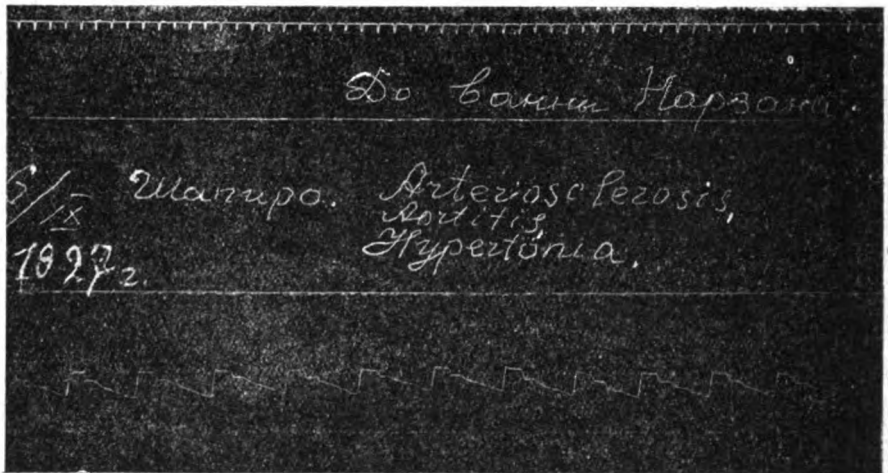 До ванны Нарзана.
6/IX Шапиро. Arteriosclerosis,
Aortitis,
Hypertonia.
1927 г.